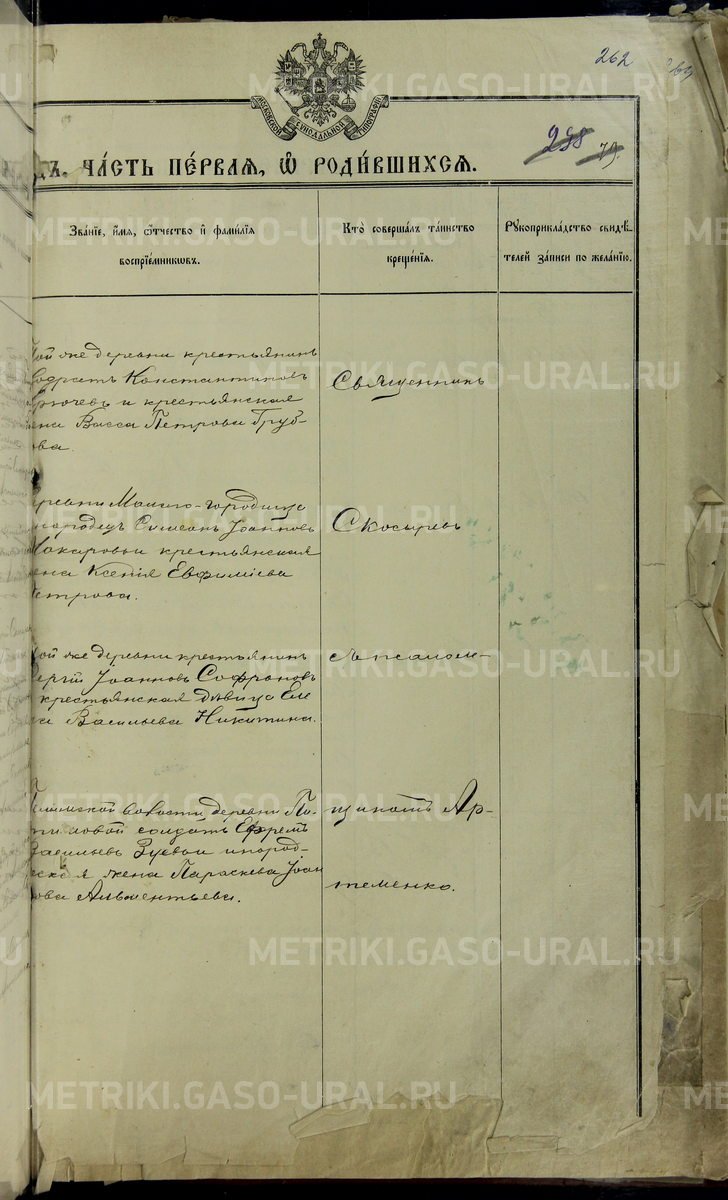 262
МОСКОВСКОЙ СѴНОДАЛЬНОЙ ТИПОГРАФІИ
298 79.
дъ. ЧА́СТЬ ПЕ́РВАѦ, Ѡ҆ РОДИ́ВШИХСѦ.
Зва́нїе, и҆́мѧ, ѻ҆́тчество и҆ фами́лїѧ
воспрїе́мникѡвъ.
Кто̀ соверша́лъ та́инство
креще́нїѧ.
Рꙋкоприкла́дство свидѣ́-
телей за́писи по жела́нїю.
той же деревни крестьянинъ
Константиновъ
и крестьянская
жена Васса Петрова Груб-
ова.
Священникъ
деревни Малаго-городища
инородецъ Симеонъ Іоанновъ
Макаровъ и крестьянская
жена Ксенія Евфиміева
Петрова.
Скосыревъ
той же деревни крестьянинъ
Сергій Іоанновъ Софроновъ
и крестьянская дѣвица Еле-
на Васильева Никитина.
съ псалом-
волости деревни По-
ловой солдатъ Ефремъ
Васильевъ Зуевъ и инород-
ческая жена Параскева Іоан
нова Альментьева.
щикомъ Ар-
теменко.
METRIKI.GASO-URAL.RU